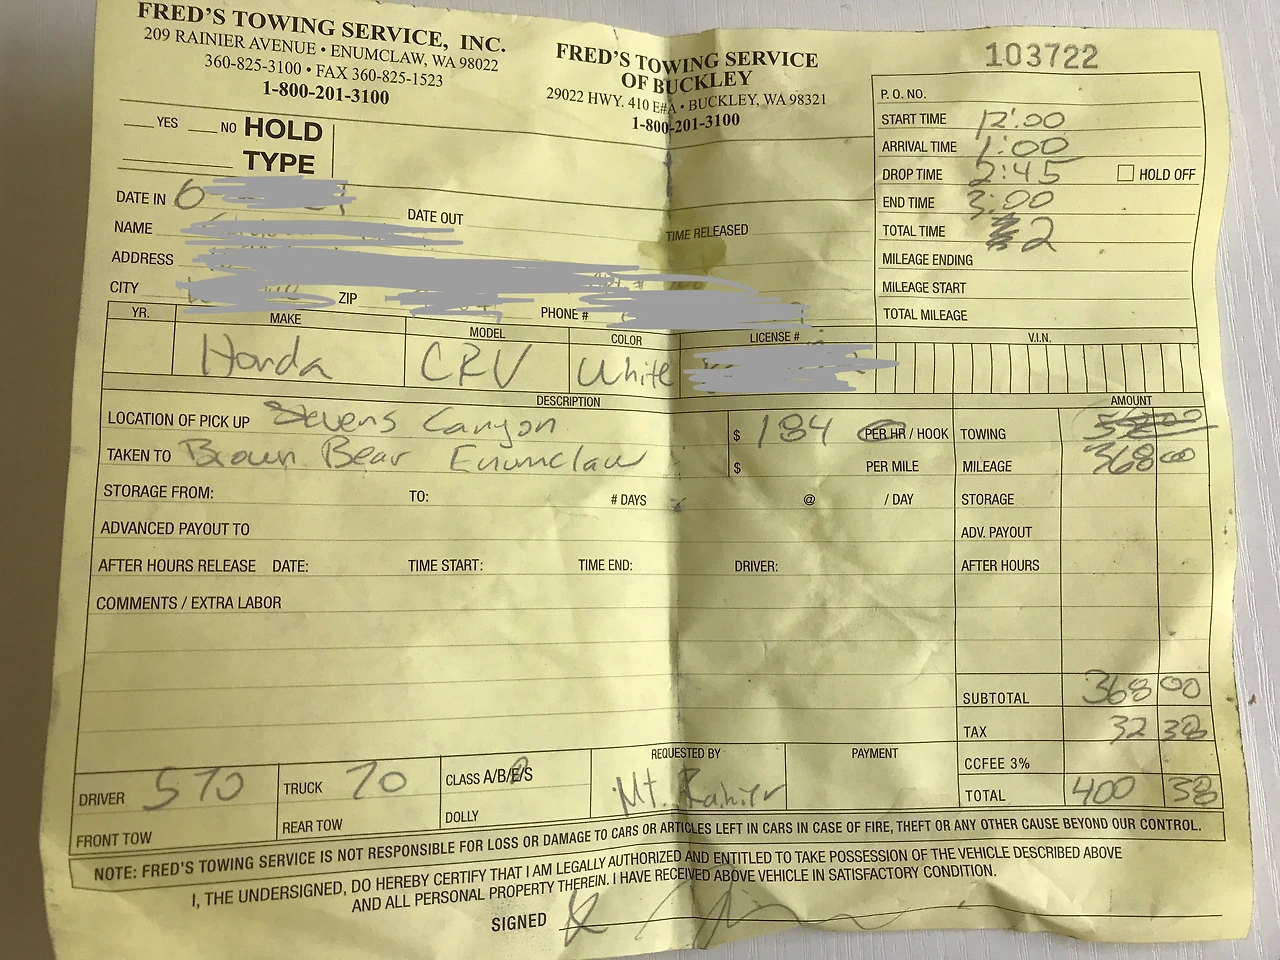 FRED'S TOWING SERVICE, INC.
209 RAINIER AVENUE • ENUMCLAW, WA 98022
360-825-3100 • FAX 360-825-1523
1-800-201-3100
FRED'S TOWING SERVICE
OF BUCKLEY
29022 HWY. 410 E#A • BUCKLEY, WA 98321
1-800-201-3100
103722
YES NO HOLD
TYPE
P. O. NO.
START TIME 12:00
ARRIVAL TIME 1:00
DROP TIME 2:45 HOLD OFF
END TIME 3:00
TOTAL TIME 2
MILEAGE ENDING
MILEAGE START
TOTAL MILEAGE
DATE IN 6 DATE OUT
NAME TIME RELEASED
ADDRESS
CITY ZIP PHONE #
YR. MAKE MODEL COLOR LICENSE # V.I.N.
Honda CRV White
DESCRIPTION AMOUNT
LOCATION OF PICK UP Stevens Canyon $ 184 PER HR / HOOK TOWING
TAKEN TO Brown Bear Enumclaw $ PER MILE MILEAGE 368 00
STORAGE FROM: TO: # DAYS @ / DAY STORAGE
ADVANCED PAYOUT TO ADV. PAYOUT
AFTER HOURS RELEASE DATE: TIME START: TIME END: DRIVER: AFTER HOURS
COMMENTS / EXTRA LABOR
SUBTOTAL 368 00
TAX 32 38
CCFEE 3%
TOTAL 400 38
DRIVER 570 TRUCK 70 CLASS A/B/E/S REQUESTED BY PAYMENT
Mt. Rainier
FRONT TOW REAR TOW DOLLY
NOTE: FRED'S TOWING SERVICE IS NOT RESPONSIBLE FOR LOSS OR DAMAGE TO CARS OR ARTICLES LEFT IN CARS IN CASE OF FIRE, THEFT OR ANY OTHER CAUSE BEYOND OUR CONTROL.
I, THE UNDERSIGNED, DO HEREBY CERTIFY THAT I AM LEGALLY AUTHORIZED AND ENTITLED TO TAKE POSSESSION OF THE VEHICLE DESCRIBED ABOVE
AND ALL PERSONAL PROPERTY THEREIN. I HAVE RECEIVED ABOVE VEHICLE IN SATISFACTORY CONDITION.
SIGNED